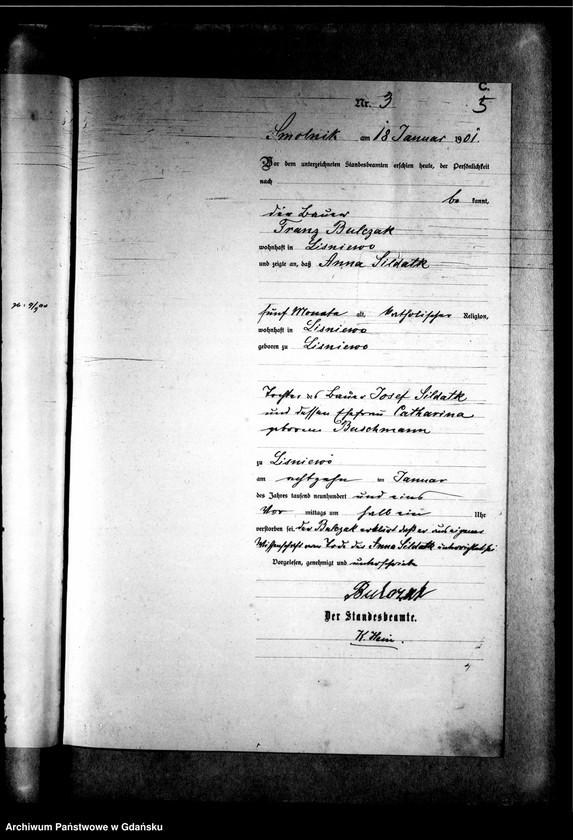 C.
Nr. 3
5
Smolnik am 18 Januar 1901.
Vor dem unterzeichneten Standesbeamten erschien heute, der Persönlichkeit
nach
be kannt,
der Bauer
Franz Bulczak
wohnhaft in Lisniewo
und zeigte an, daß Anna Sildatk
fünf Monate alt, katholischer Religion,
wohnhaft in Lisniewo
geboren zu Lisniewo
Tochter des Bauer Josef Sildatk
und dessen Ehefrau Catharina
geborene Buschmann
zu Lisniewo
am achtzehn ten Januar
des Jahres tausend neunhundert und eins
Vor mittags um halb ein Uhr
verstorben sei. Der Bulczak erklärt daß er aus eigener
Wissenschaft vom Tode der Anna Sildatk unterrichtet sei
Vorgelesen, genehmigt und unterschrieben
Bulczak
Der Standesbeamte.
K. Hein.
Archiwum Państwowe w Gdańsku